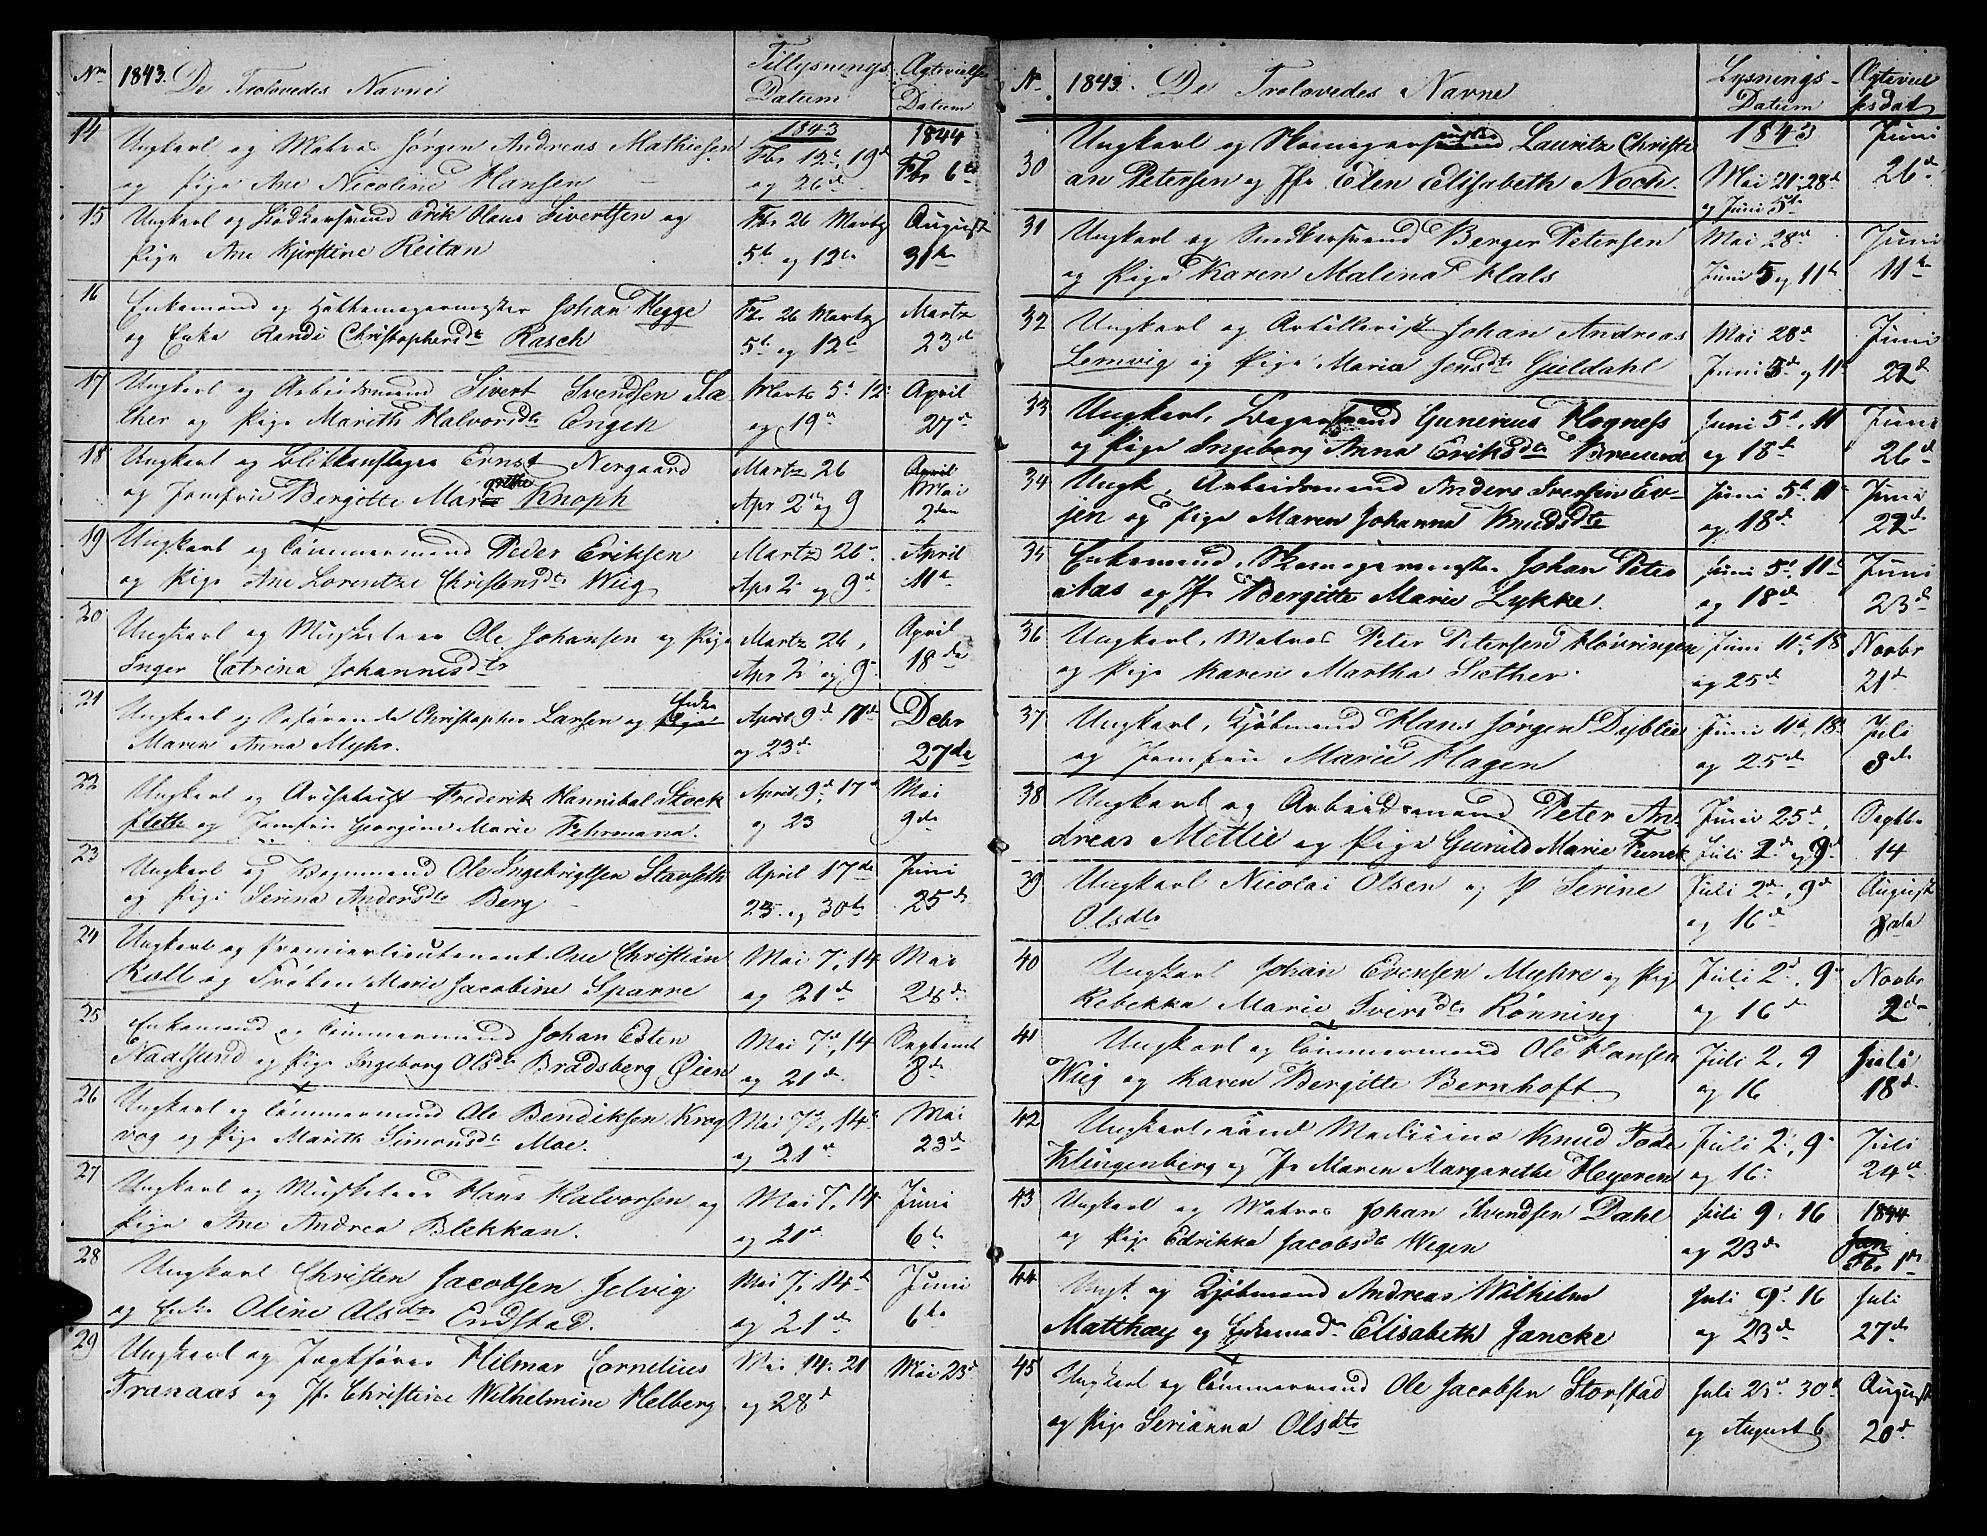 Nr 1843. De Trolovedes Navne Tillysnings Datum Ægtevielse Datum
14 Ungkarl og Matros Jørgen Andreas Mathiesen 1843 1844
Fbr 12te, 19de Fbr 6te
og Pige Ane Nicoline Hansen og 26de
15 Ungkarl og Erik Olaus Sivertsen og Fbr 26 Martz August
Pige Ane Kjerstine Reitan 5te og 12te 31te
16 Enkemand og Hattemagermester Johan Hegge Fbr 26 Martz Martz
og Enke Randi Christophersdtr Rasch 5te og 12te 23de
17 Ungkarl og Arbeidsmand Sivert Svendsen Sæ Martz 5te 12te April
ther og Pige Marith Halvorsdtr Engen og 19de 27de
18 Ungkarl og Blikkenslager Ernst Nergaard Martz 26 April Mai
og Jomfrue Bergitte Marie Grethe Knoph Apr 2den og 9 2den
19 Ungkarl og Tømmermand Peder Eriksen Martz 26 April
og Pige Ane Lorentze Christensdtr Wiig Apr 2 og 9de 11te
20 Ungkarl og Musketeer Ole Johansen og Pige Martz 26, April
Inger Catrina Johannesdtr Apr 2 og 9 18de
21 Ungkarl og Søfarende Christopher Larsen og Pige Enke April 9de 17de Debr
Maren Anna Myhr. og 23de 27de
22 Ungkarl og Frederik Hannibal Stock April 9de, 17de Mai
fleth og Jomfrue Georgine Marie Fehrmann. og 23 9de
23 Ungkarl og Ole Ingebrigtsen Stavseth April 17de Juni
og Pige Serina Andersdtr Berg 23 og 30te 25de
24 Ungkarl og Premierlieutenant Ove Christian Mai 7, 14 Mai
Roll og Frøken Marie Jacobine Sparre og 21de 24de
25 Enkemand og Tømmermand Johan Esten Mai 7de, 14 Septemb
Nadssund og Pige Ingeborg Olsdtr Bradsberg Øien og 21de 8de
26 Ungkarl og Tømmermand Ole Bendiksen Krog Mai 7de, 14 Mai
vog og Pige Marith Simonsdtr Moe. og 21de 23de
27 Ungkarl og Musketeer Hans Halvorsen og Mai 7, 14 Juni
Pige Ane Andrea Blekkan. og 21de 6te
28 Ungkarl Christen Jacobsen Selvig Mai 7, 14de Juni
og Enke Oline Olsdtr Endstad. og 21de 6te
29 Ungkarl og Jagtfører Hilmar Cornelius Mai 14. 21 Mai 23de
Tranaas og Jfr Christine Wilhelmine Helberg og 28de
Nr 1843. De Trolovedes Navne Lysnings-Datum Ægteviel sesdat
30 Ungkarl og Skomager Lauritz Christi 1843 Juni
an Petersen og Jfr Elen Elisabeth Noch. Mai 21, 28de 26de
og Juni 5te
31 Ungkarl og Snedkersvend Berger Petersen Mai 28de Juni
og Pige Karen Malina Hals Juni 5 og 11te 11te
32 Ungkarl og Artillerist Johan Andreas Mai 28de Juni
Lemvig og Pige Maria Jensdtr Guldahl Juni 5te og 11te 22de
33 Ungkarl, Bagersvend Gunerius Hogness Juni 5te, 11 Juni
og Pige Ingeborg Anna Eriksdtr Breesund og 18de 26de
34 Ungk, Arbeidsmand Anders Iversen Ev- Juni 5te 11 Juni
jen og Pige Maren Johanna Knudsdtr og 18de 22de
35 Enkemand, Skomagermester Johan Peter Juni 5te 11te Juni
Aas og Jfr Bergitte Marie Lykke. og 18de 23de
36 Ungkarl, Matros Peter Petersen Høvringen Juni 11te, 18 Novbr
og Pige Karen Martha Sæther og 25de 21de
37 Ungkarl, Kjøbmand Hans Jørgen Dyblie Juni 11te, 18de Juli
og Jomfrue Marie Hagen og 25de 8de
38 Ungkarl og Arbeidsmand Peter An- Juni 25de, Septbr
dreas Mettlie og Pige Gunild Marie Funck Juli 2de og 9de 14
39 Ungkarl Nicolai Olsen og P Serine Juli 2de, 9de August
Olsdtr og 16de
40 Ungkarl Johan Evensen Myhre og Pige Juli 2de, 9de Novbr
Rebekka Marie Iversdtr Rønning og 16de 2de
41 Ungkarl og Tømmermand Ole Hansen Juli 2, 9 Juli
Wiig og Karen Bergitte Bernhoft. og 16 18de
42 Ungkarl, Cand Medicine Knud Tode Juli 2, 9 Juli
Klingenberg og Jfr Maren Margarethe Heyeren og 16 24de
43 Ungkarl og Matros Johan Svendsen Dahl Juli 9, 16 1844
og Pige Edrikka Jacobsdtr Wegen og 23de Jan Fbr 1de
44 Ungk og Kjøbmand Andreas Wilhelm Juli 9, 16 Juli
Matthay og Elisabeth Jancke og 23de 27de
45 Ungkarl og Tømmermand Ole Jacobsen Storstad Juli 23de 30te August
og Pige Serianna Olsdtr og August 6 20de